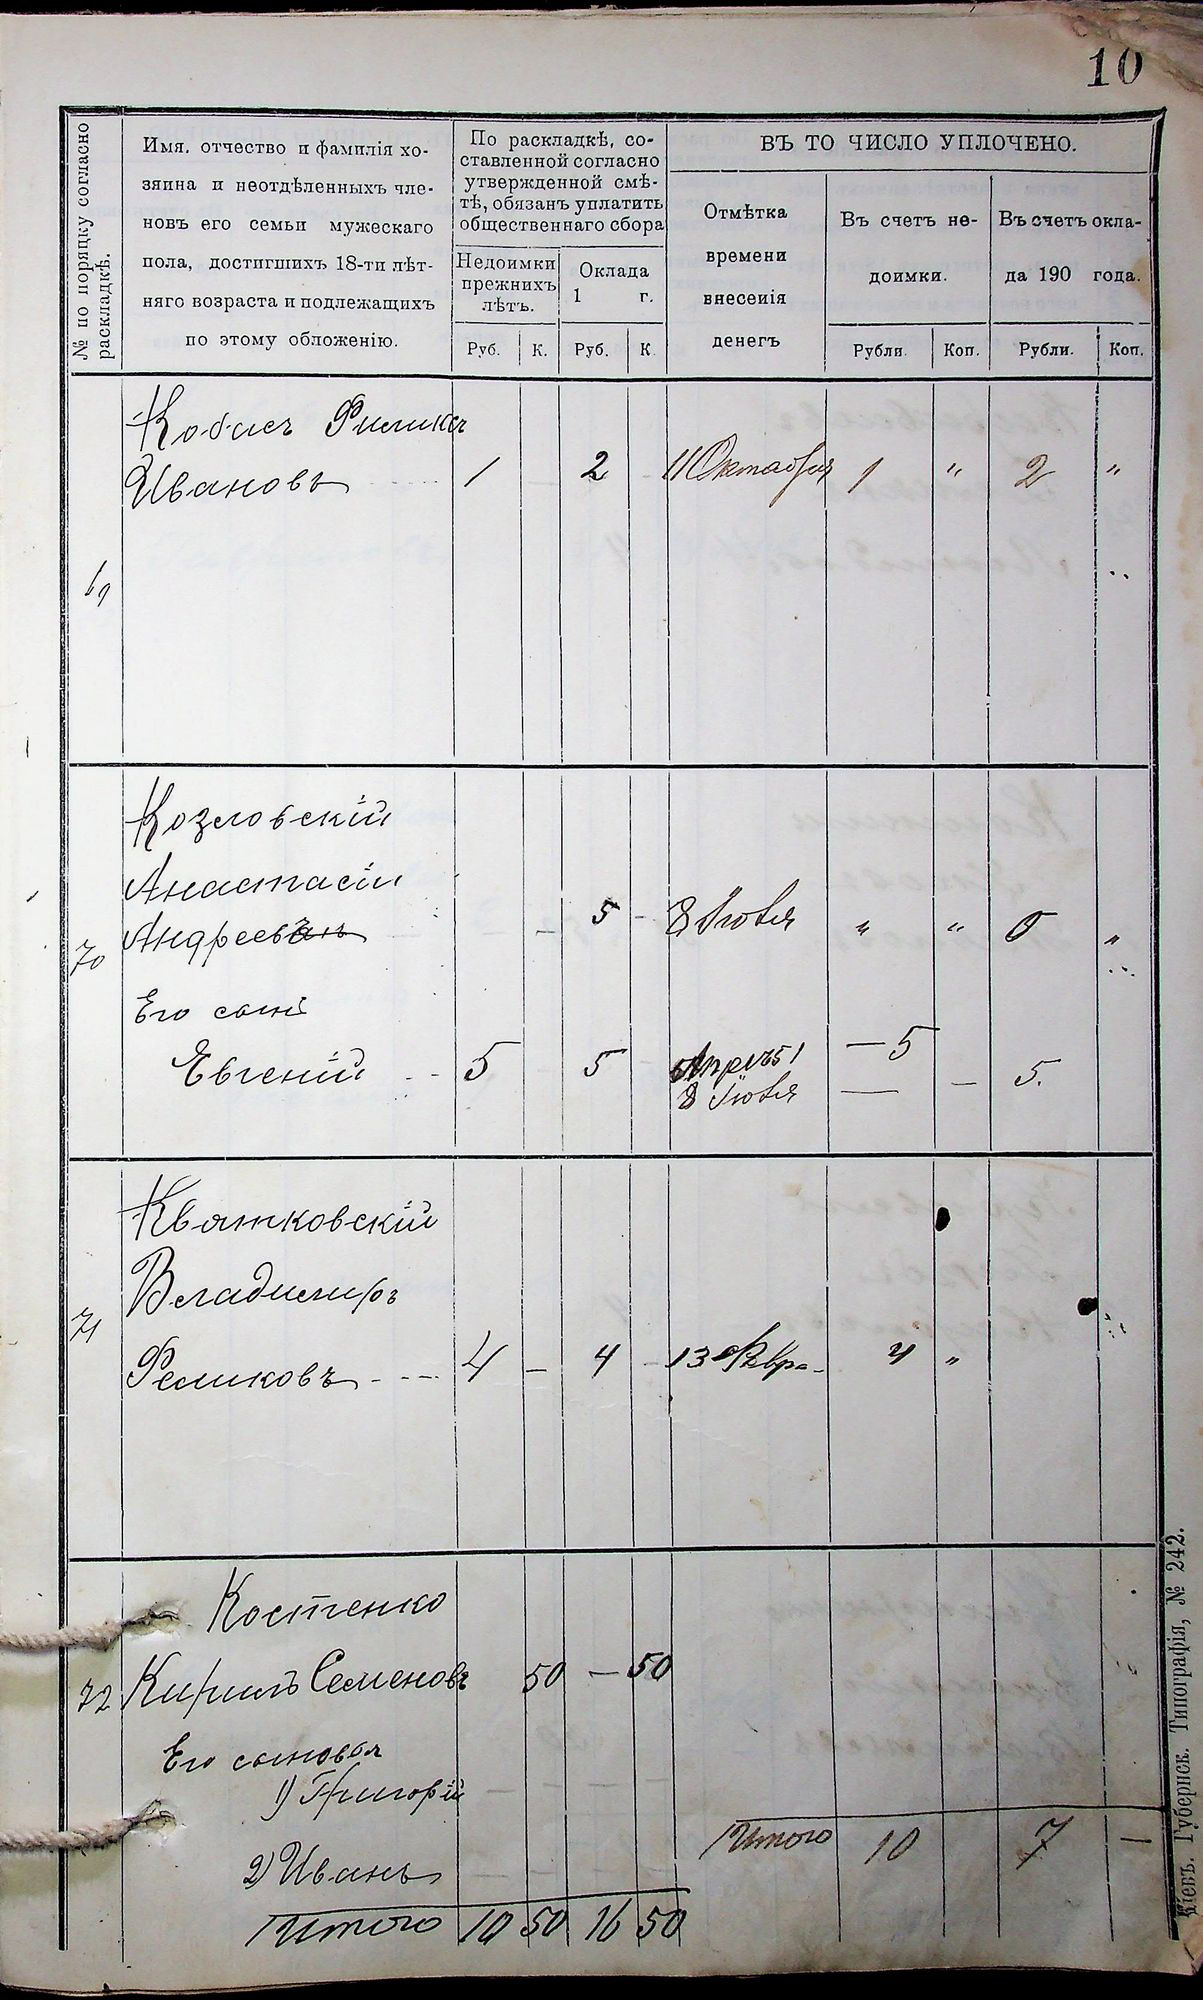 10
№ по порядку согласно раскладкѣ.
Имя, отчество и фамилія хо-
зяина и неотдѣленныхъ чле-
новъ его семьи мужескаго
пола, достигшихъ 18-ти лѣт-
няго возраста и подлежащихъ
по этому обложенію.
По раскладкѣ, со-
ставленной согласно
утвержденной смѣ-
тѣ, обязанъ уплатить
общественнаго сбора
Недоимки
прежнихъ
лѣтъ.
Оклада
1 г.
Руб. К. Руб. К
ВЪ ТО ЧИСЛО УПЛОЧЕНО.
Отмѣтка
времени
внесенія
денегъ
Въ счетъ не-
доимки.
Въ счетъ окла-
да 190 года.
Рубли. Коп. Рубли. Коп.
69
Кобисъ Филикс
Ивановъ 1 2 11 Октября 1 " 2 "
Козловскій
Анастасій
70 Андреевъ - 5 - 8 Іюля " " 5 "
Его сынъ
Евгеній 5 5 - 5
8 Іюля — - 5.
Квятковскій
71 Владимиръ
Феликовъ 4 - 4 - 13 Февра- 4 "
Костенко
72 Кирилъ Семеновъ 50 — 50
Его сыновья
1) Григорій
2) Иванъ
Итого 10 7 —
Итого 10 50 16 50
Кіевъ. Губернск. Типографія, № 242.